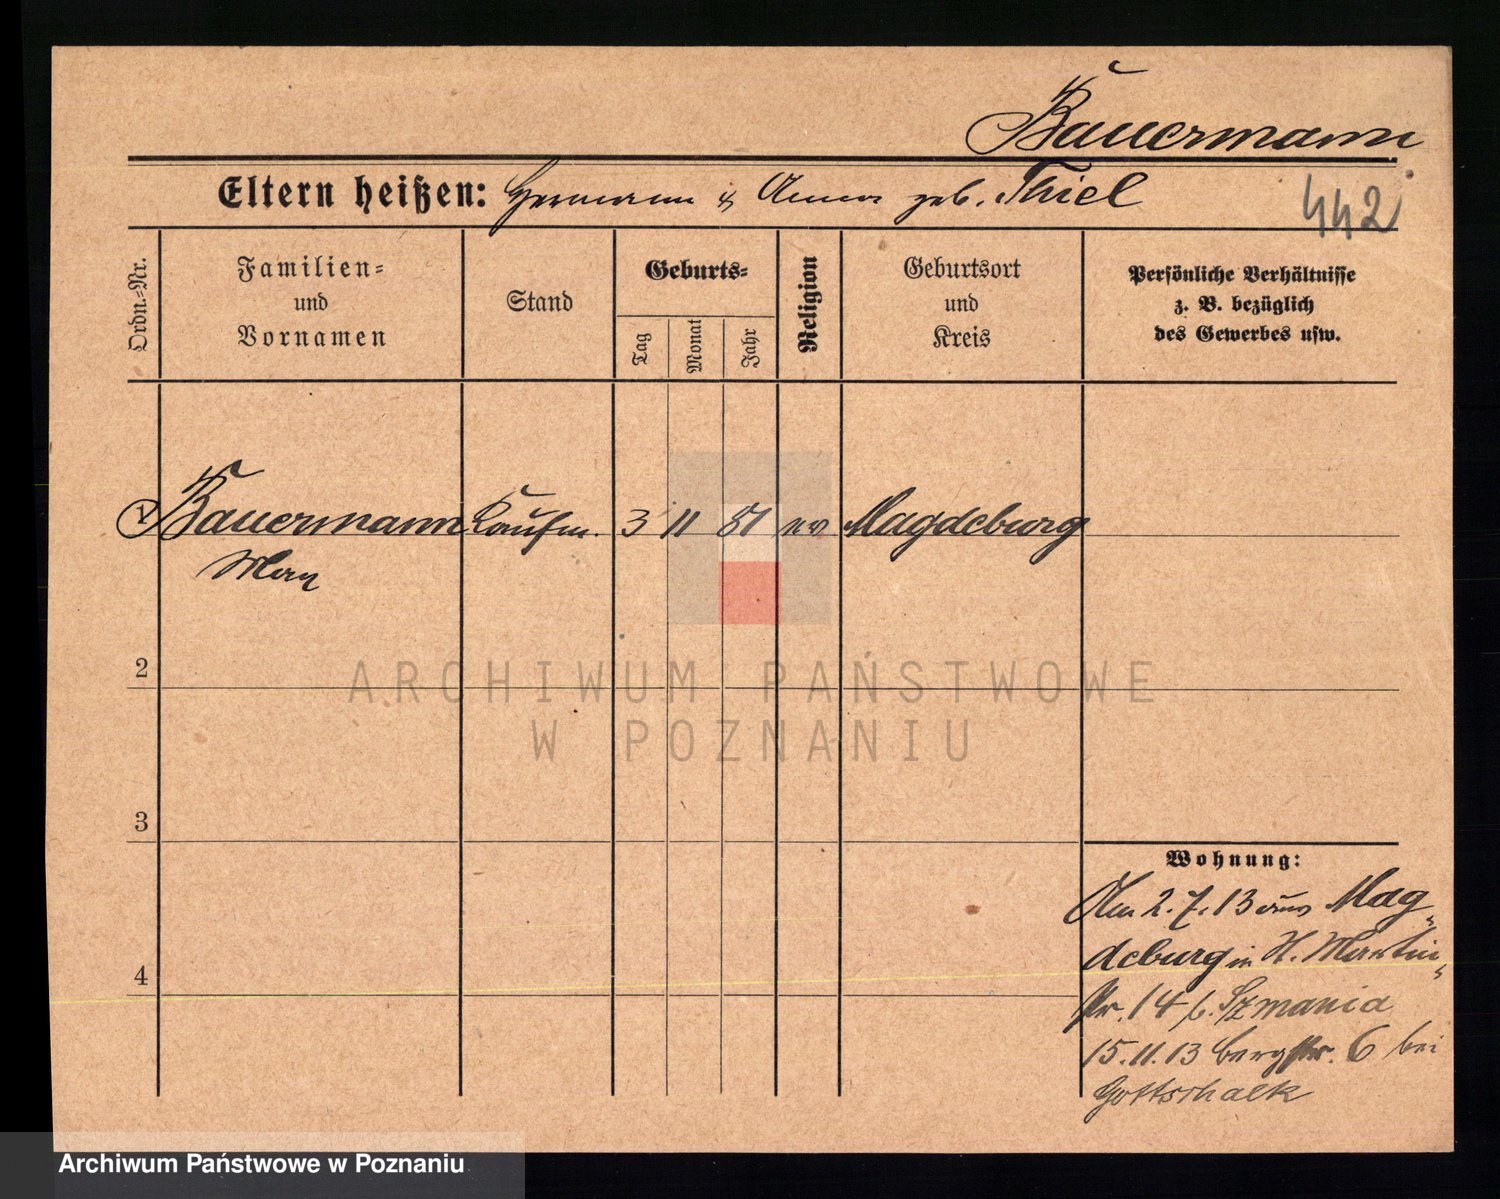 Bauermann
Eltern heißen: Hermann & Anna geb. Thiel
442
Ordn.=Nr.
Familien=
und
Vornamen
Stand
Geburts=
Tag
Monat
Jahr
Religion
Geburtsort
und
Kreis
Persönliche Verhältnisse
z. B. bezüglich
des Gewerbes usw.
1 Bauermann Kaufm. 3 11 81 ev Magdeburg
Max
2
3
4
Wohnung:
Am 2.7.13 aus Mag„
deburg in St. Martin„
str. 14 b. Szmania
15.11.13 Bergstr. 6 bei
Gottschalk
ARCHIWUM PAŃSTWOWE
W POZNANIU
Archiwum Państwowe w Poznaniu